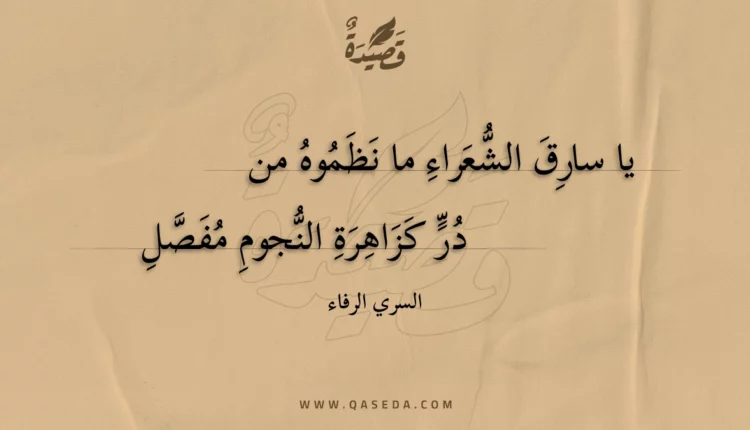 قَصِيدَةٌ
يا سارِقَ الشُّعَراءِ ما نَظَمُوهُ من
دُرٍّ كَزَاهِرَةِ النُّجومِ مُفَصَّلِ
السري الرفاء
WWW.QASEDA.COM